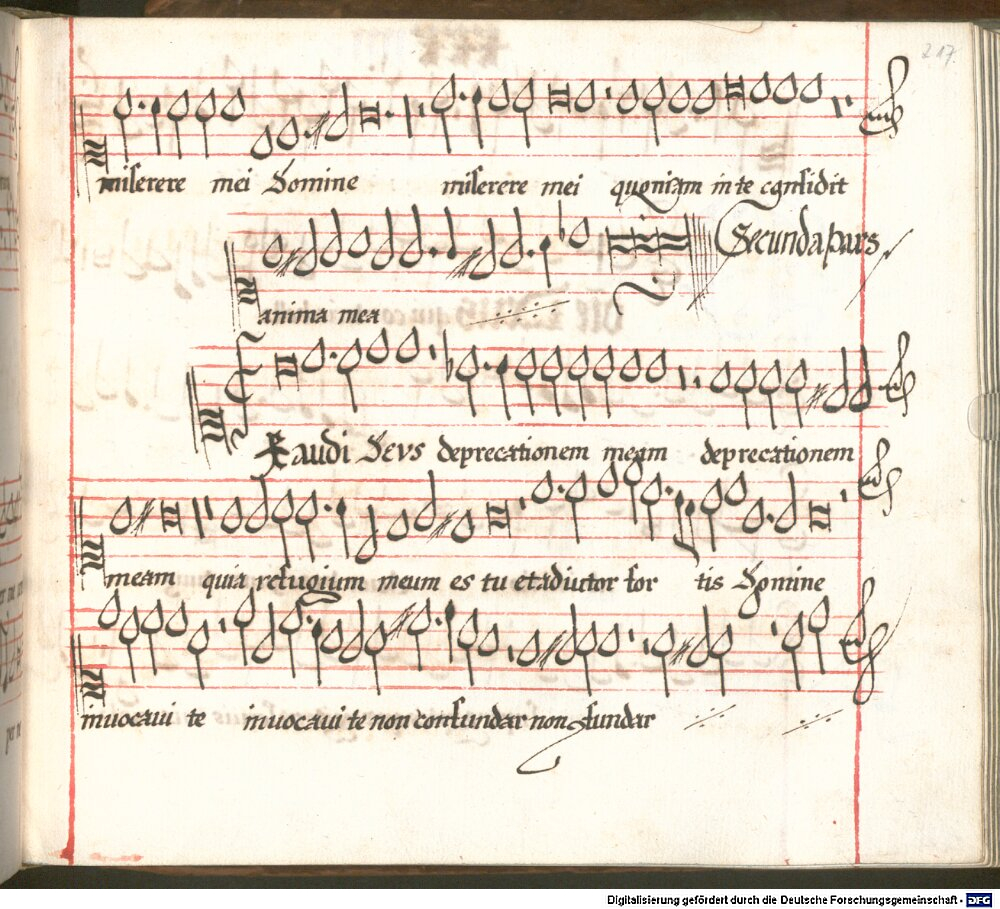 217.
miserere mei Domine miserere mei quoniam in te confidit
Secunda pars
anima mea
Exaudi Deus deprecationem meam deprecationem
meam quia refugium meum es tu et adiutor for tis Domine
inuocaui te inuocaui te non confundar non fundar
Digitalisierung gefördert durch die Deutsche Forschungsgemeinschaft - DFG